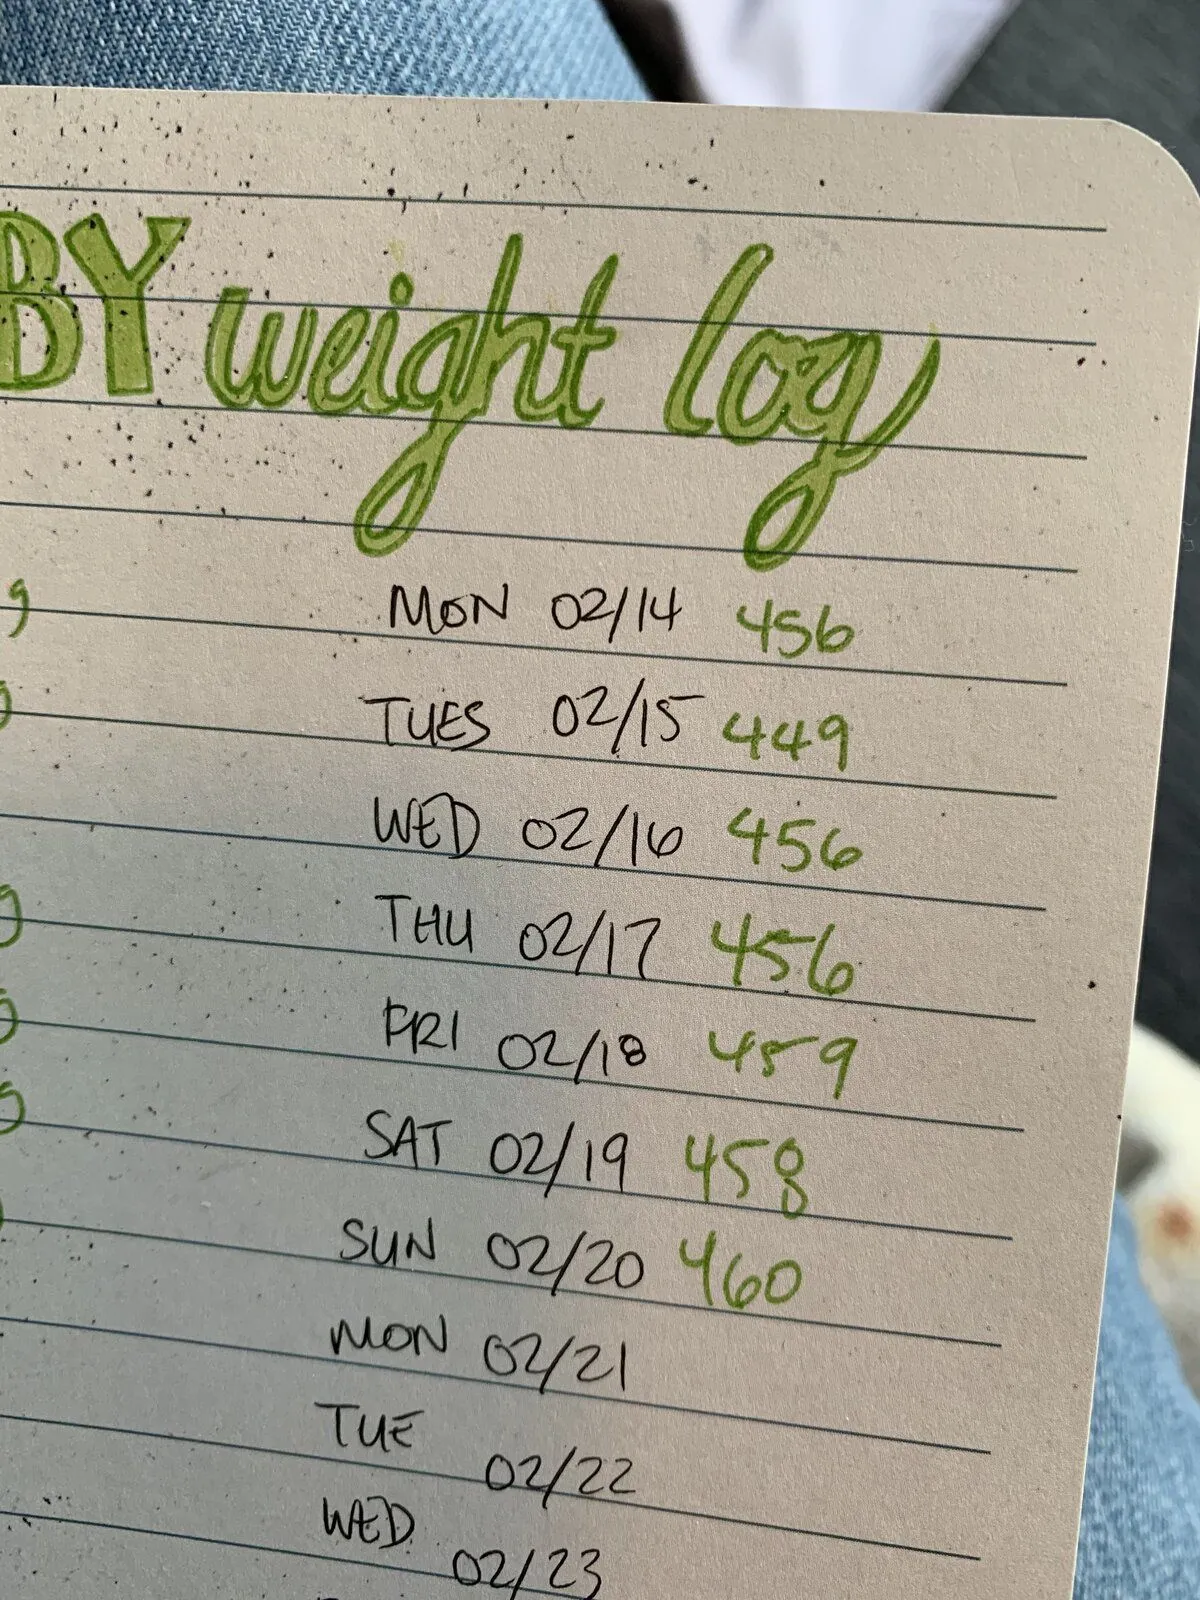 BY weight log
MON 02/14 456
TUES 02/15 449
WED 02/16 456
THU 02/17 456
FRI 02/18 459
SAT 02/19 458
SUN 02/20 460
MON 02/21
TUE 02/22
WED 02/23